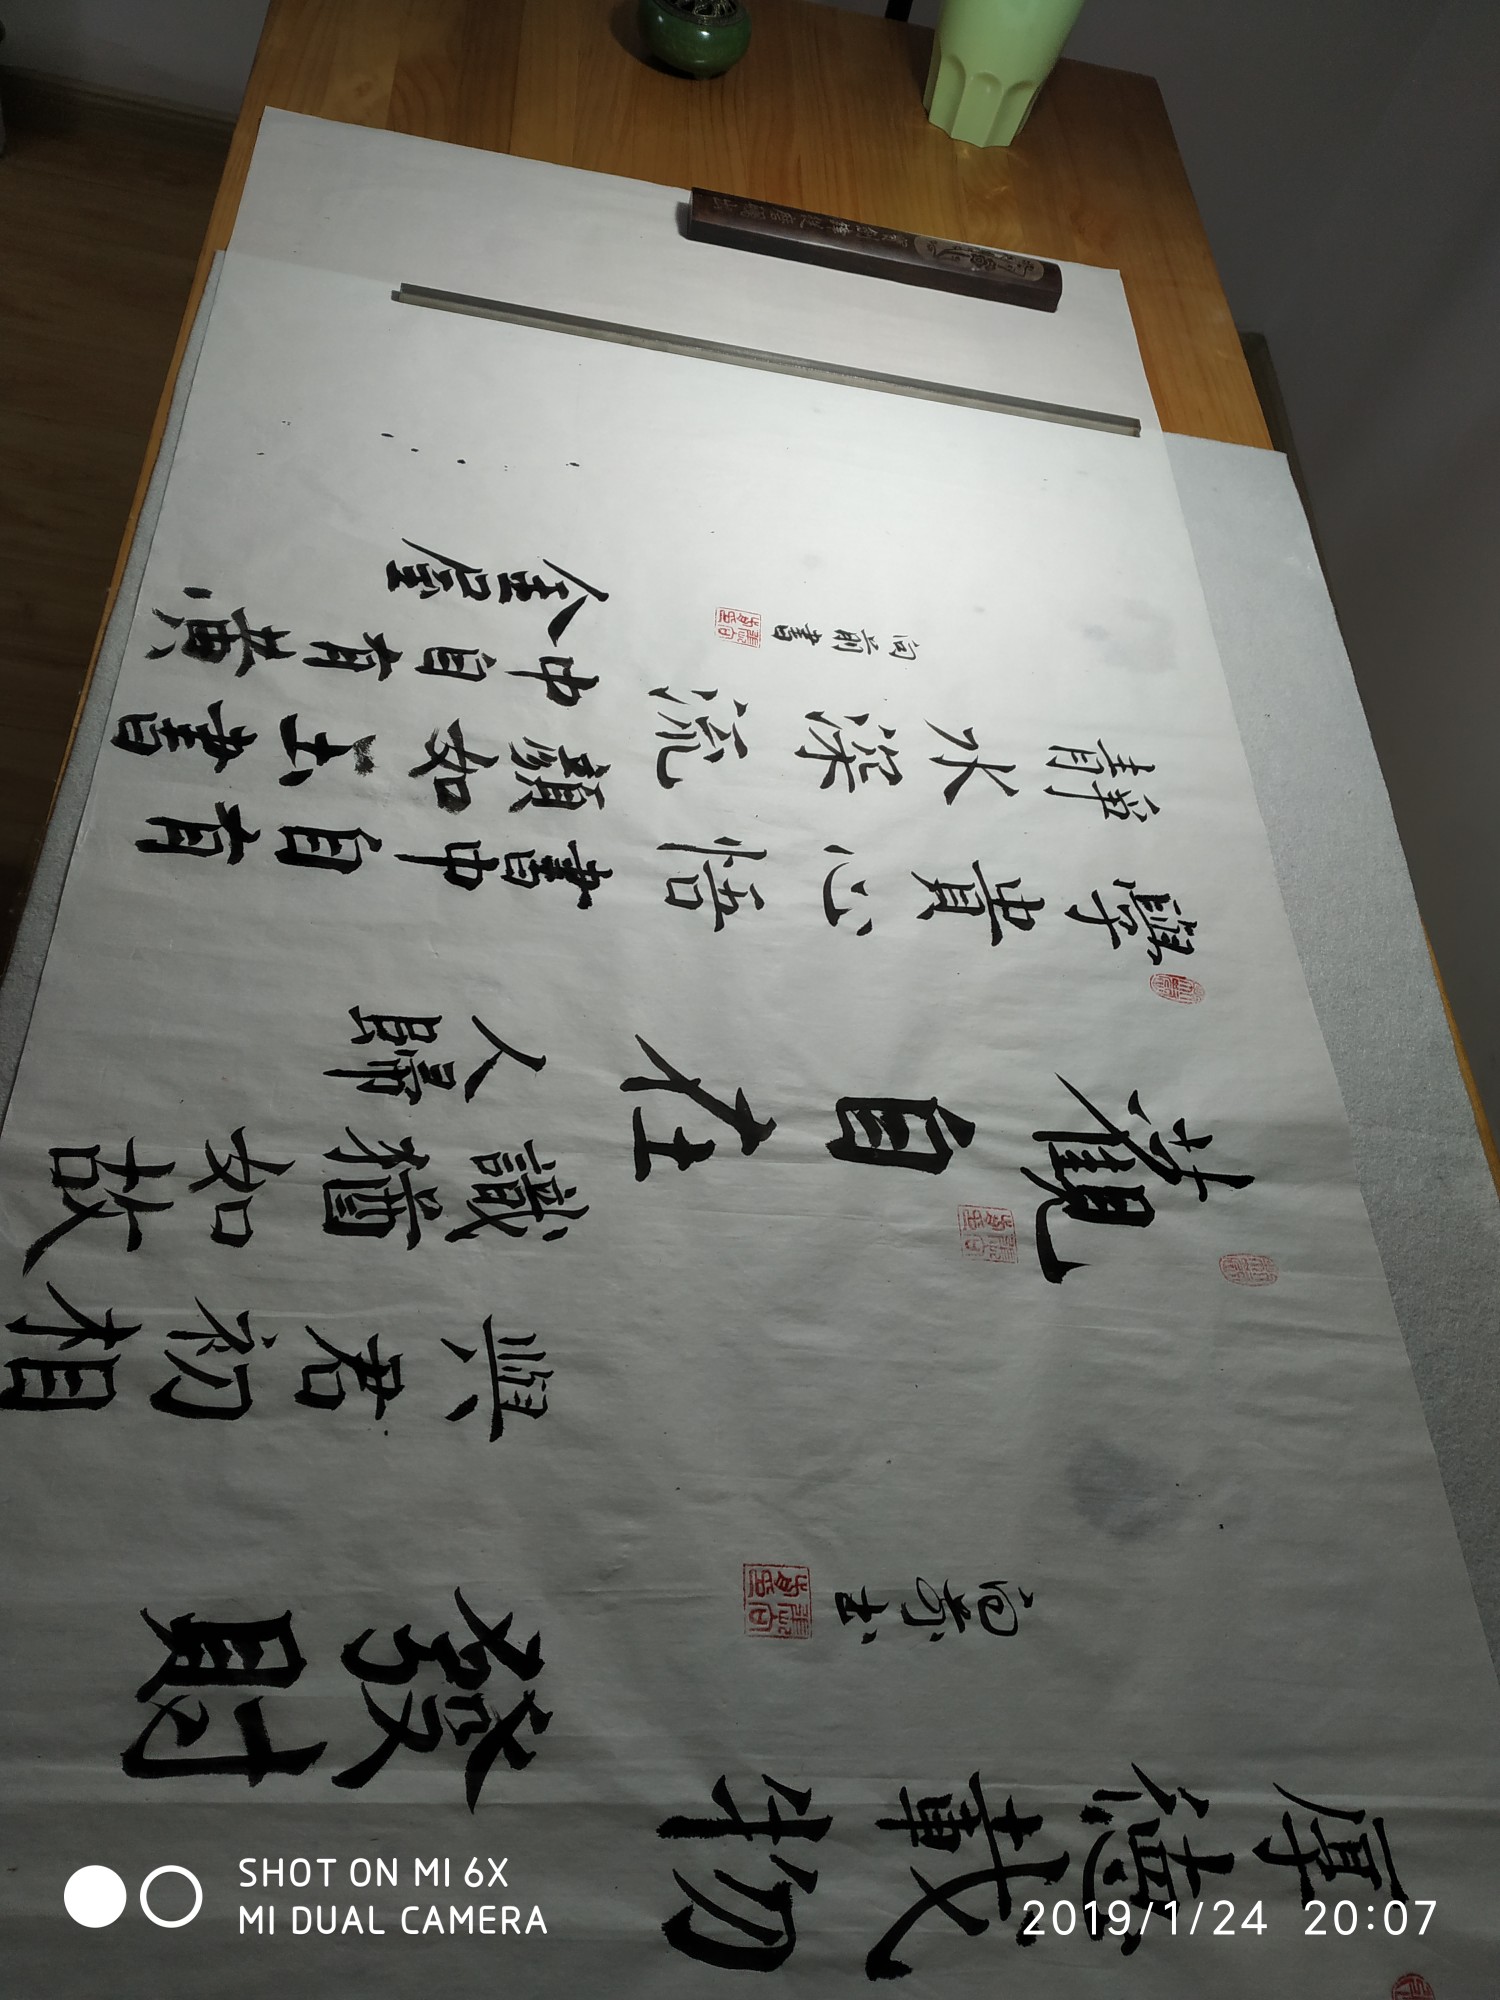 厚德載物
向前书
發財
觀自在
與君初相
識猶如故
人歸
學貴心悟
靜水深流
向前書
書中自有
顏如玉書
中自有黃
金屋
SHOT ON MI 6X
MI DUAL CAMERA
2019/1/24 20:07